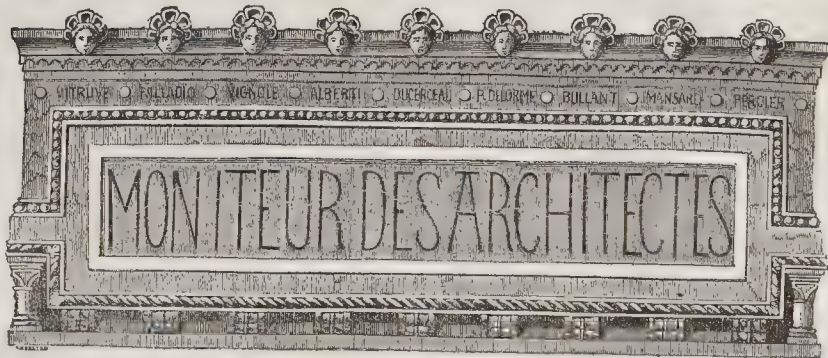 VITRUVE PALLADIO VIGNOLE ALBERTI DUCERCEAU P. DELORME BULLANT MANSARD PERCIER
MONITEUR DES ARCHITECTES